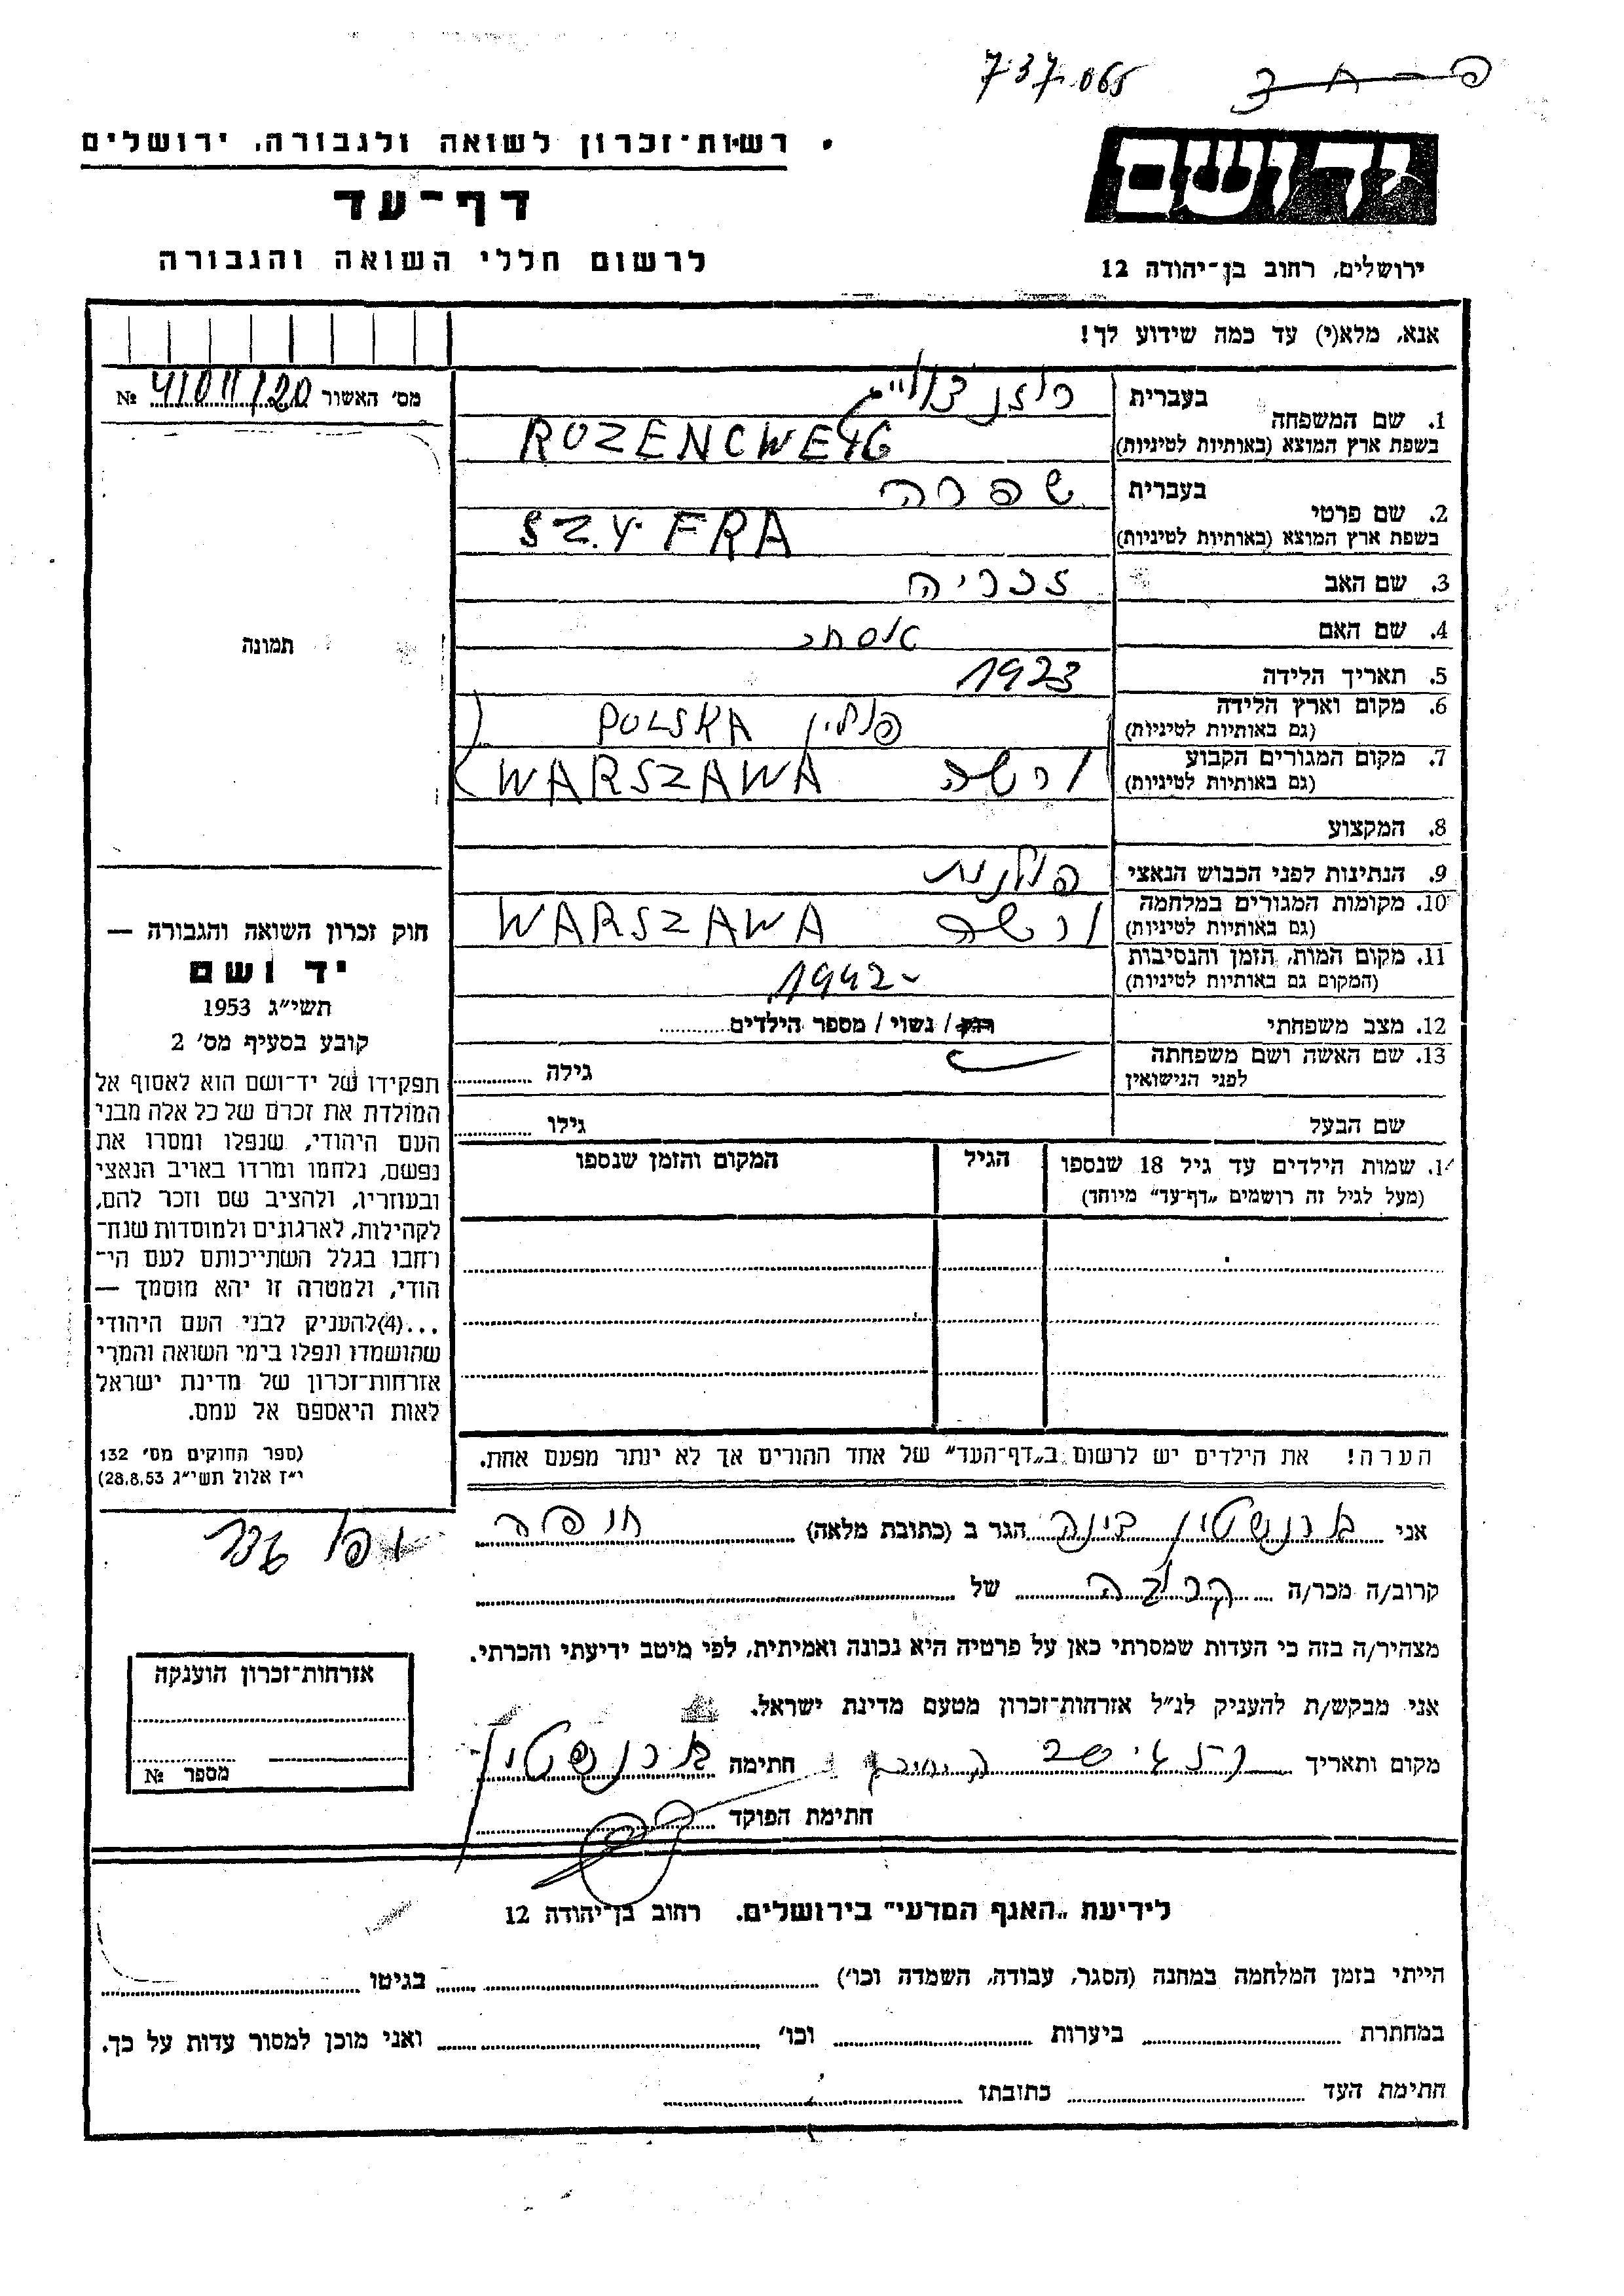 737.065
רשות־זכרון לשואה ולגבורה, ירושלים
דף־עד
לרשום חללי השואה והגבורה
יד ושם
ירושלים, רחוב בן־יהודה 12
אנא, מלא(י) עד כמה שידוע לך!
מס׳ האשור 41011/20 №
תמונה
1. שם המשפחה בעברית רוזנצווייג
בשפת ארץ המוצא (באותיות לטיניות) ROZENCWEYG
2. שם פרטי בעברית שפרה
בשפת ארץ המוצא (באותיות לטיניות) SZYFRA
3. שם האב זכריה
4. שם האם
5. תאריך הלידה 1923
6. מקום וארץ הלידה (גם באותיות לטיניות) פולין POLSKA
7. מקום המגורים הקבוע (גם באותיות לטיניות) ורשה WARSZAWA
8. המקצוע
9. הנתינות לפני הכבוש הנאצי פולנית
10. מקומות המגורים במלחמה (גם באותיות לטיניות) ורשה WARSZAWA
11. מקום המות, הזמן והנסיבות (המקום גם באותיות לטיניות) 1942-
12. מצב משפחתי רווק / נשוי / מספר הילדים
13. שם האשה ושם משפחתה לפני הנישואין גילה
שם הבעל גילו
1. שמות הילדים עד גיל 18 שנספו (מעל לגיל זה רושמים „דף־עד” מיוחד) הגיל המקום והזמן שנספו
הערה! את הילדים יש לרשום ב„דף־העד” של אחד ההורים אך לא יותר מפעם אחת.
חוק זכרון השואה והגבורה —
יד ושם
תשי״ג 1953
קובע בסעיף מס׳ 2
תפקידו של יד־ושם הוא לאסוף אל
המולדת את זכרם של כל אלה מבני
העם היהודי, שנפלו ומסרו את
נפשם, נלחמו ומרדו באויב הנאצי
ובעוזריו, ולהציב שם וזכר להם,
לקהילות, לארגונים ולמוסדות שנח־
רחבו בגלל השתייכותם לעם הי־
הודי, ולמטרה זו יהא מוסמך —
...(4) להעניק לבני העם היהודי
שהושמדו ונפלו בימי השואה והמרי
אזרחות־זכרון של מדינת ישראל
לאות היאספם אל עמם.
(ספר החוקים מס׳ 132
י״ז אלול תשי״ג 28.8.53)
אני ברנשטין דינה הגר ב (כתובת מלאה) חיפה
קרוב/ה מכר/ה קרובה של
מצהיר/ה בזה כי העדות שמסרתי כאן על פרטיה היא נכונה ואמיתית, לפי מיטב ידיעתי והכרתי.
אני מבקש/ת להעניק לנ״ל אזרחות־זכרון מטעם מדינת ישראל.
מקום ותאריך חתימה ברנשטין
חתימת הפוקד
אזרחות־זכרון הוענקה
מספר №
לידיעת „האגף המדעי” בירושלים. רחוב בן־יהודה 12
הייתי בזמן המלחמה במחנה (הסגר, עבודה, השמדה וכו׳) בגיטו
במחתרת ביערות וכו׳ ואני מוכן למסור עדות על כך.
חתימת העד כתובתו